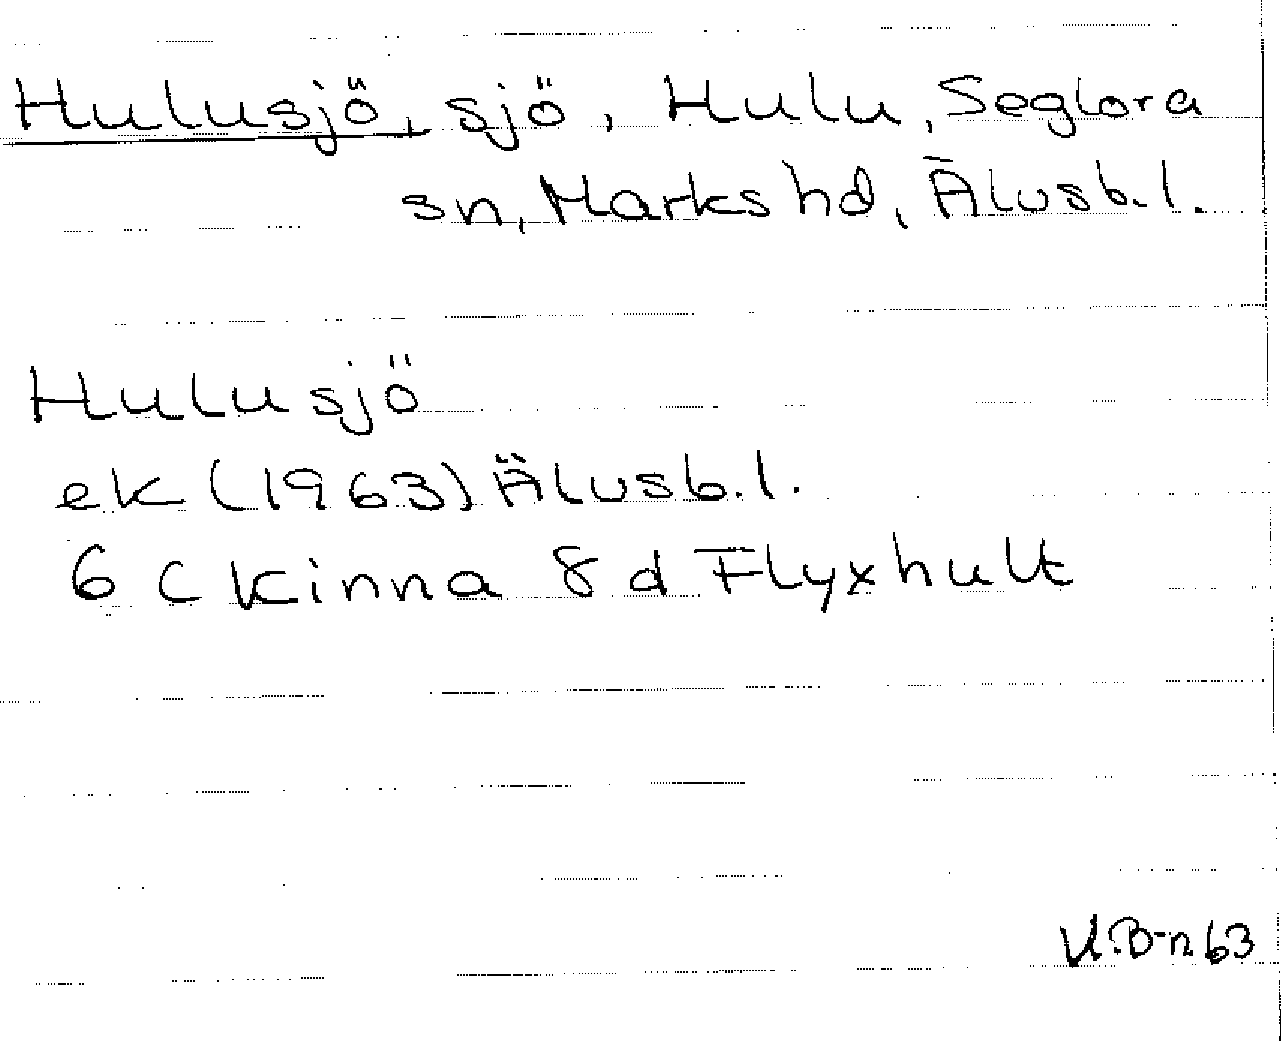 Hulusjö, sjö, Hulu, Seglora
sn, Marks hd, Älvsb. l.
Hulusjö
ek (1963) Älvsb. l.
6 C Kinna 8 d Flyxhult
V.B-n 63